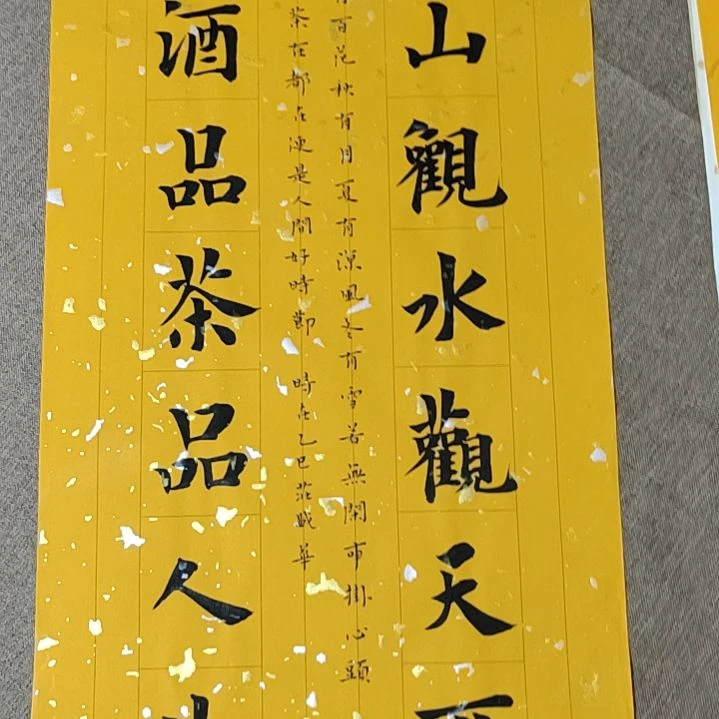 山觀水觀天
百花秋有月夏有涼風冬有雪若無閑事掛心頭
茶在都在便是人間好時節 時在乙巳
酒品茶品人